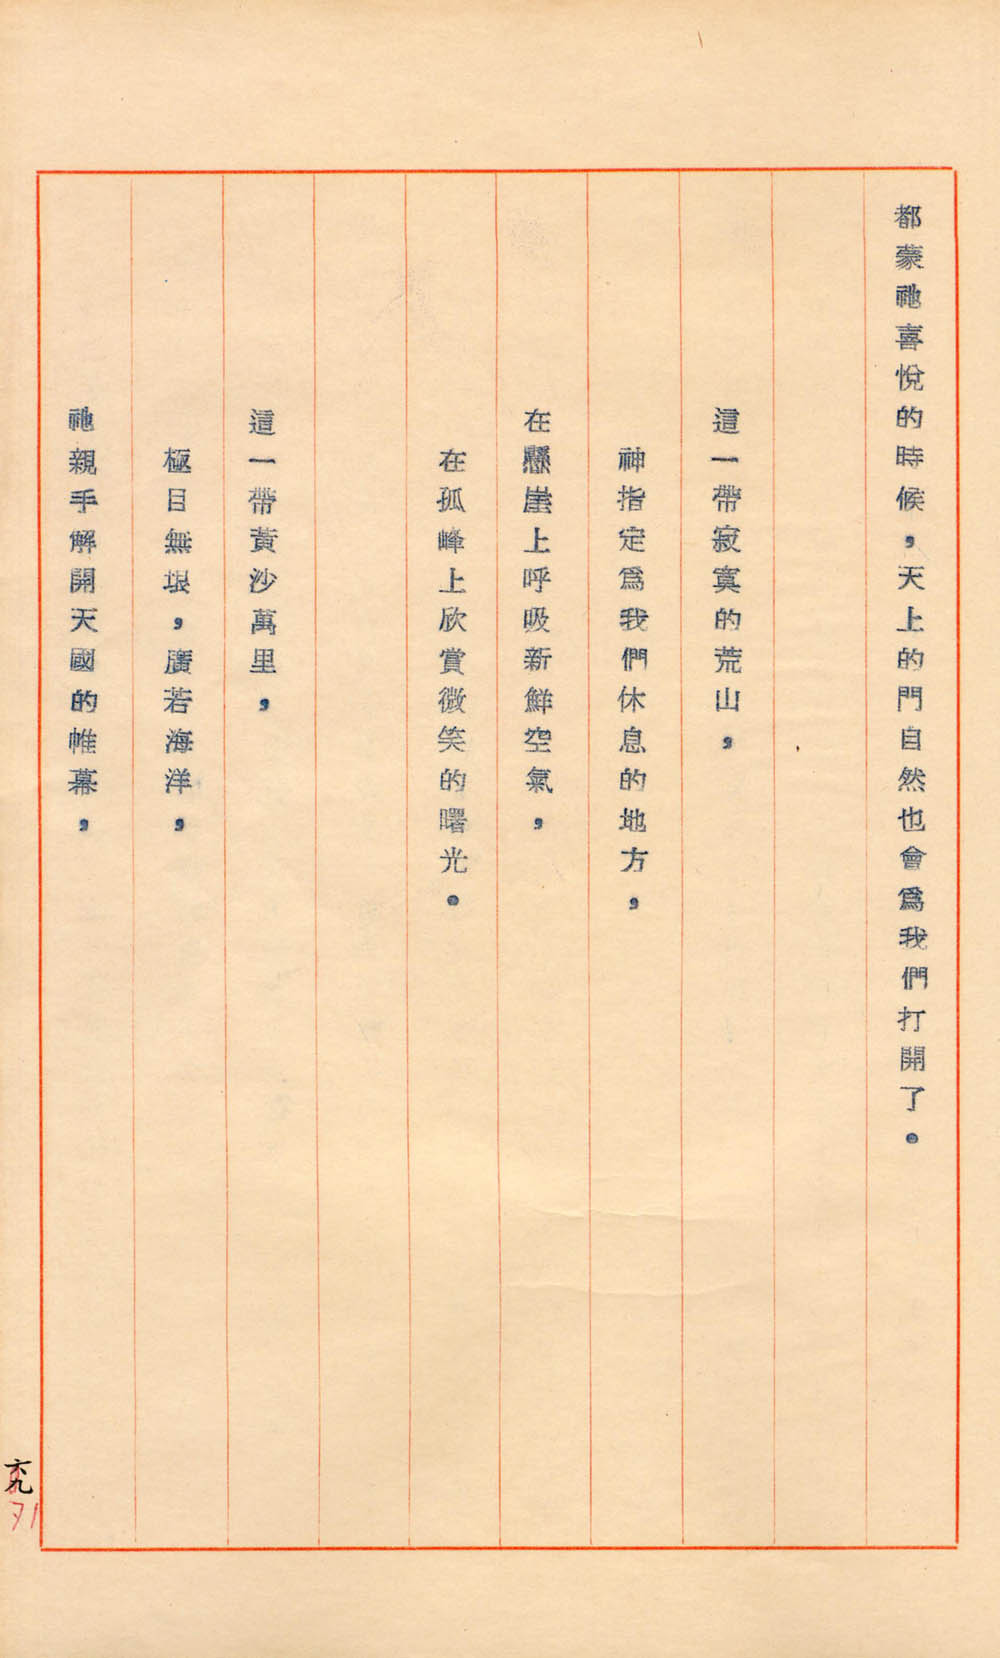 都蒙祂喜悅的時候，天上的門自然也會爲我們打開了。
這一帶寂寞的荒山，
神指定爲我們休息的地方，
在懸崖上呼吸新鮮空氣，
在孤峰上欣賞微笑的曙光。
這一帶黃沙萬里，
極目無垠，廣若海洋，
祂親手解開天國的帷幕，
六九
71